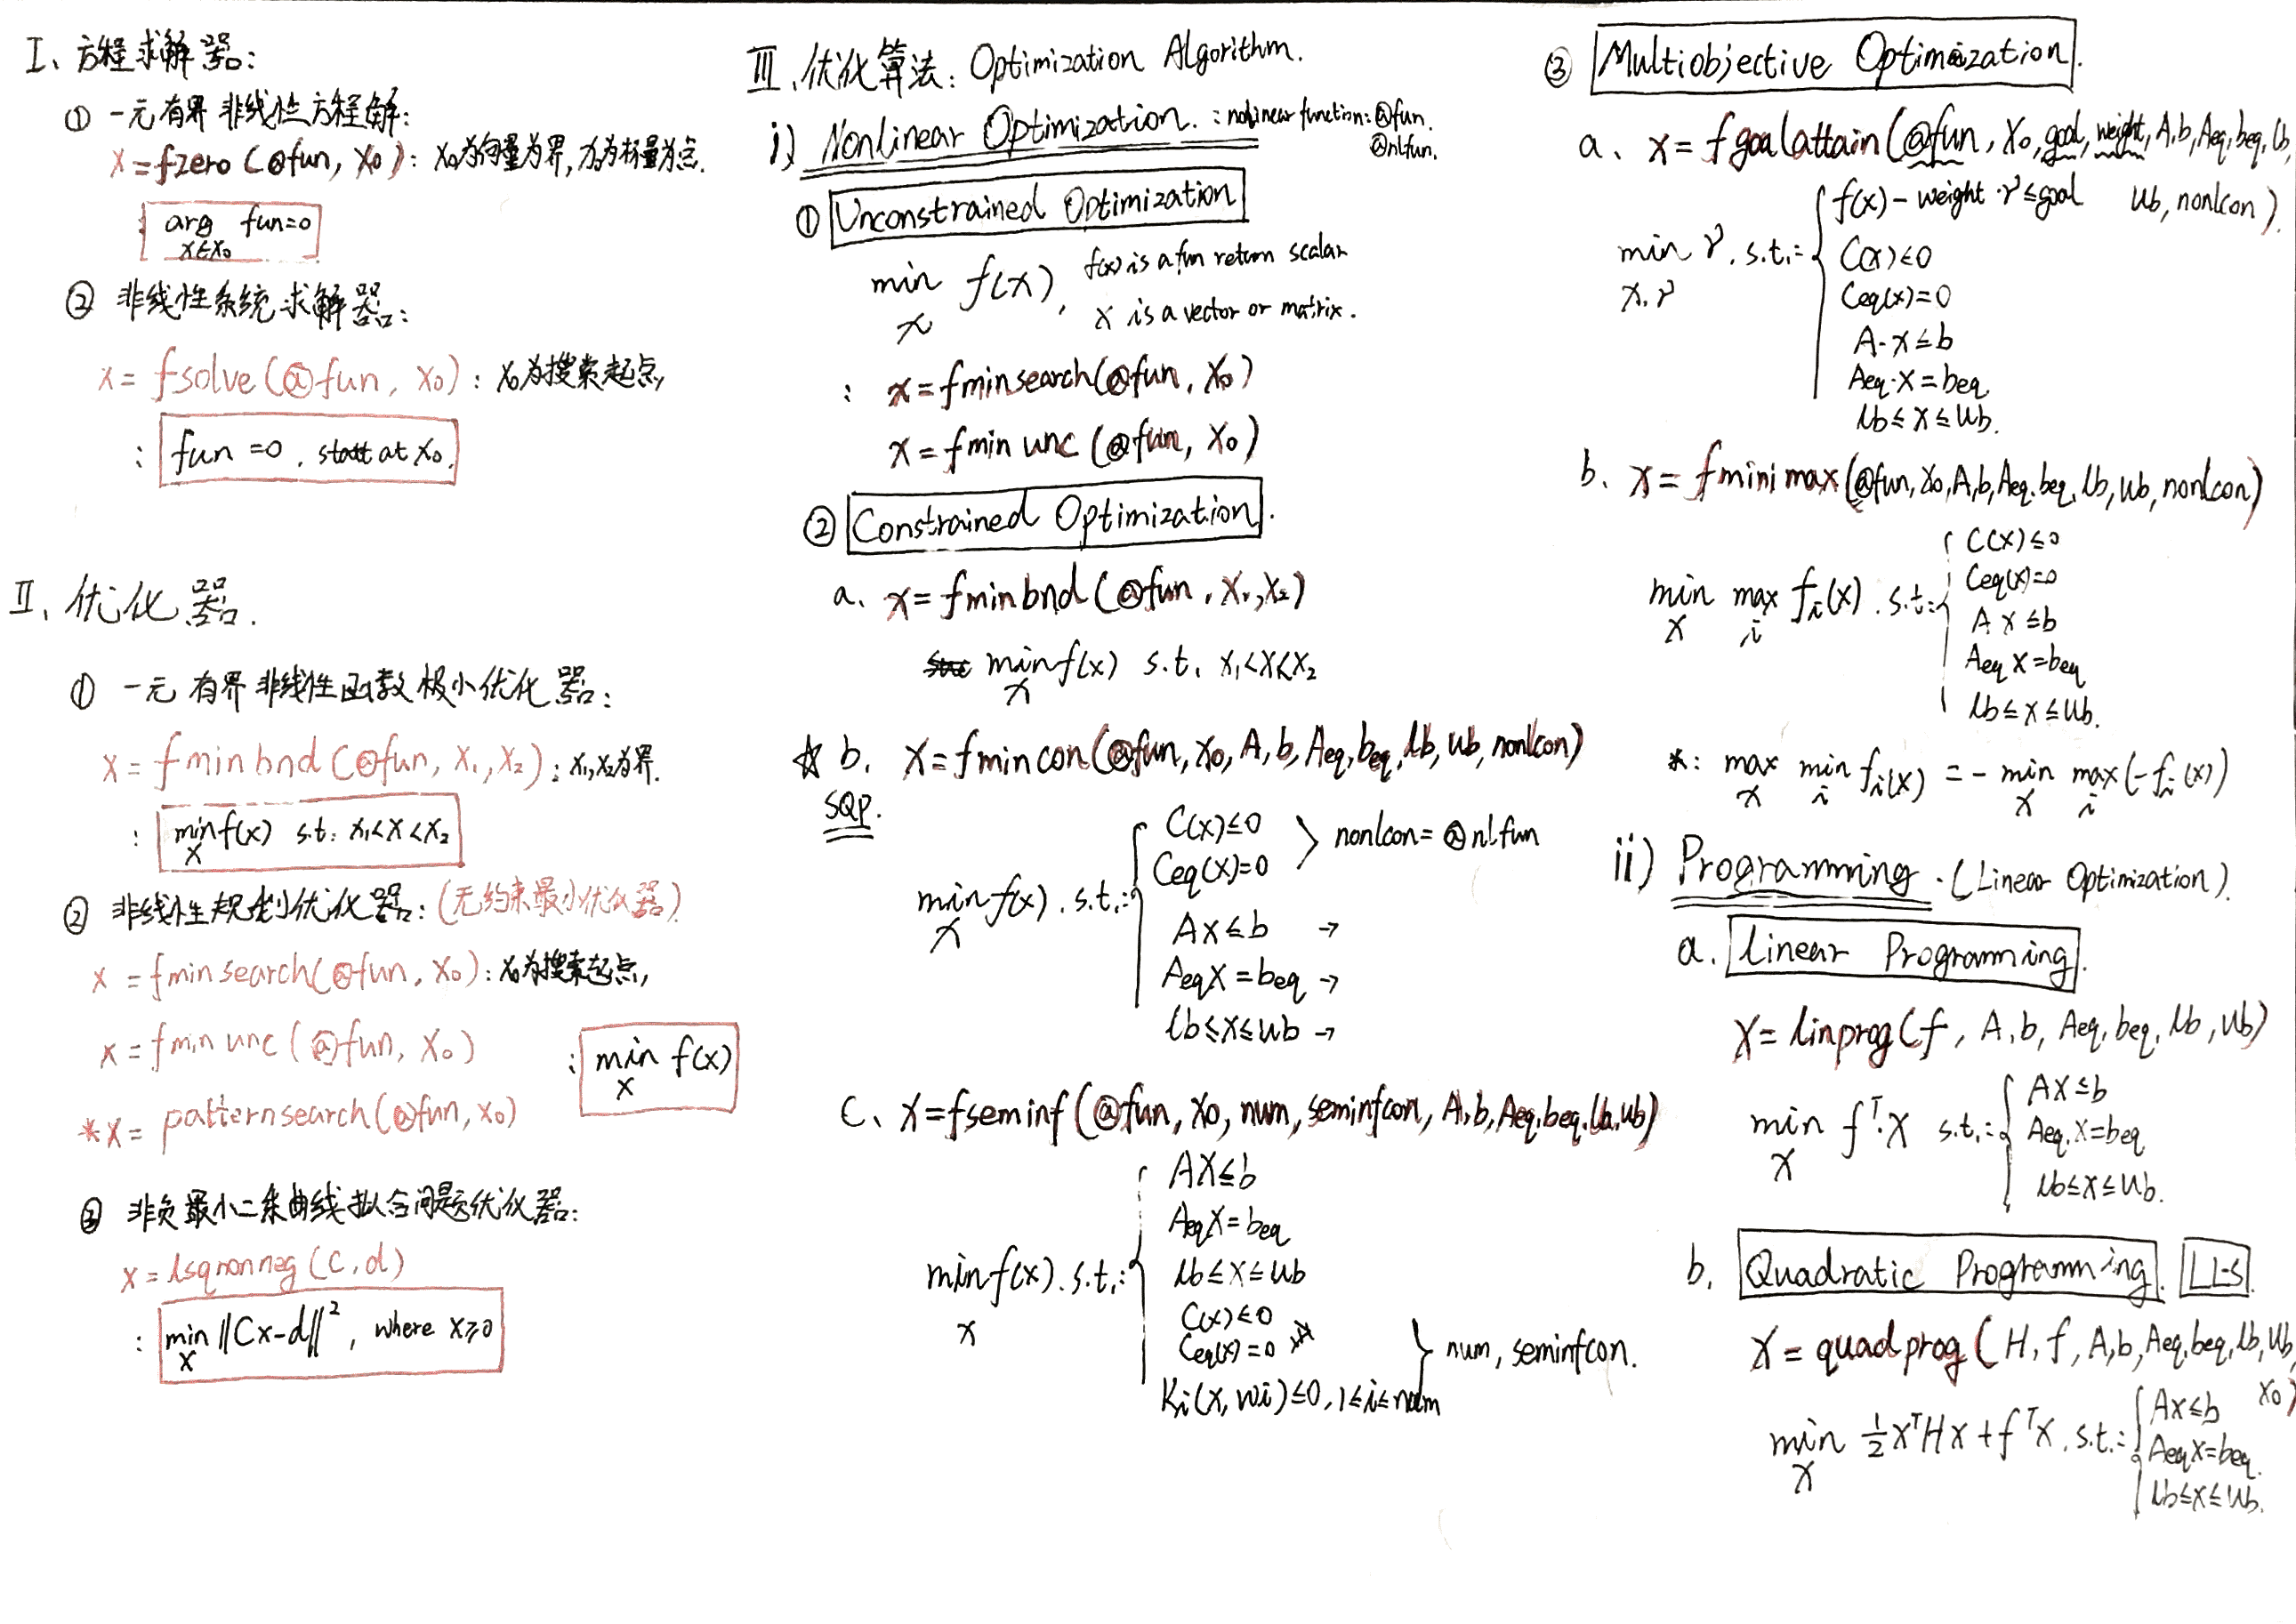 I、方程求解器:
① 一元有界非线性方程解:
x = fzero (@fun, x₀) : x₀为向量为界, 为标量为点.
: arg fun=0
x∈x₀
② 非线性系统求解器:
x = fsolve(@fun, x₀) : x₀为搜索起点,
: fun =0 , start at x₀.
II、优化器.
① 一元有界非线性函数极小优化器:
x = fminbnd (@fun, x₁, x₂) : x₁,x₂为界.
: min f(x) s.t. x₁<x<x₂
x
② 非线性规划优化器: (无约束最小优化器)
x = fminsearch(@fun, x₀) : x₀为搜索起点,
x = fminunc (@fun, x₀)
: min f(x)
x
*x = patternsearch(@fun, x₀)
③ 非负最小二乘曲线拟合问题优化器:
x = lsqnonneg (C, d)
: min ||Cx-d||², where x≥0
x
III、优化算法: Optimization Algorithm.
i) Nonlinear Optimization. : nolinear function: @fun.
@nlfun.
① Unconstrained Optimization
min f(x), f(x) is a fun return scalar
x x is a vector or matrix.
: x = fminsearch(@fun, x₀)
x = fminunc (@fun, x₀)
② Constrained Optimization.
a、x = fminbnd (@fun, x₁, x₂)
min f(x) s.t. x₁<x<x₂
x
☆ b. x = fmincon(@fun, x₀, A, b, Aeq, beq, lb, ub, nonlcon)
SQP.
C(x)≤0
Ceq(x)=0 } nonlcon = @nlfun
min f(x). s.t.:
x
Ax≤b →
Aeqx = beq →
lb≤x≤ub →
C、x = fseminf (@fun, x₀, num, seminfcon, A, b, Aeq, beq, lb, ub)
Ax≤b
Aeqx = beq
min f(x). s.t.: lb≤x≤ub
x
C(x)≤0
Ceq(x)=0
Ki(x, wi)≤0, 1≤i≤num
} num, seminfcon.
③ Multiobjective Optimization.
a、x = fgoalattain(@fun, x₀, goal, weight, A, b, Aeq, beq, lb,
ub, nonlcon).
f(x) - weight · γ ≤ goal
min γ. s.t.: C(x)≤0
x.γ Ceq(x)=0
A·x≤b
Aeq·x = beq
lb≤x≤ub.
b、x = fminimax(@fun, x₀, A, b, Aeq, beq, lb, ub, nonlcon)
C(x)≤0
min max fi(x). s.t.: Ceq(x)=0
x i
A x≤b
Aeq x=beq
lb≤x≤ub.
*: max min fi(x) = - min max (-fi(x))
x i x i
ii) Programming. (Linear Optimization).
a. Linear Programming.
x = linprog(f, A, b, Aeq, beq, lb, ub)
Ax≤b
min fᵀ·x s.t.: Aeq.x=beq
x
lb≤x≤ub.
b. Quadratic Programming. LLS.
x = quadprog (H, f, A, b, Aeq, beq, lb, ub,
x₀)
Ax≤b
min ½xᵀHx + fᵀx. s.t.: Aeqx=beq.
x
lb≤x≤ub.